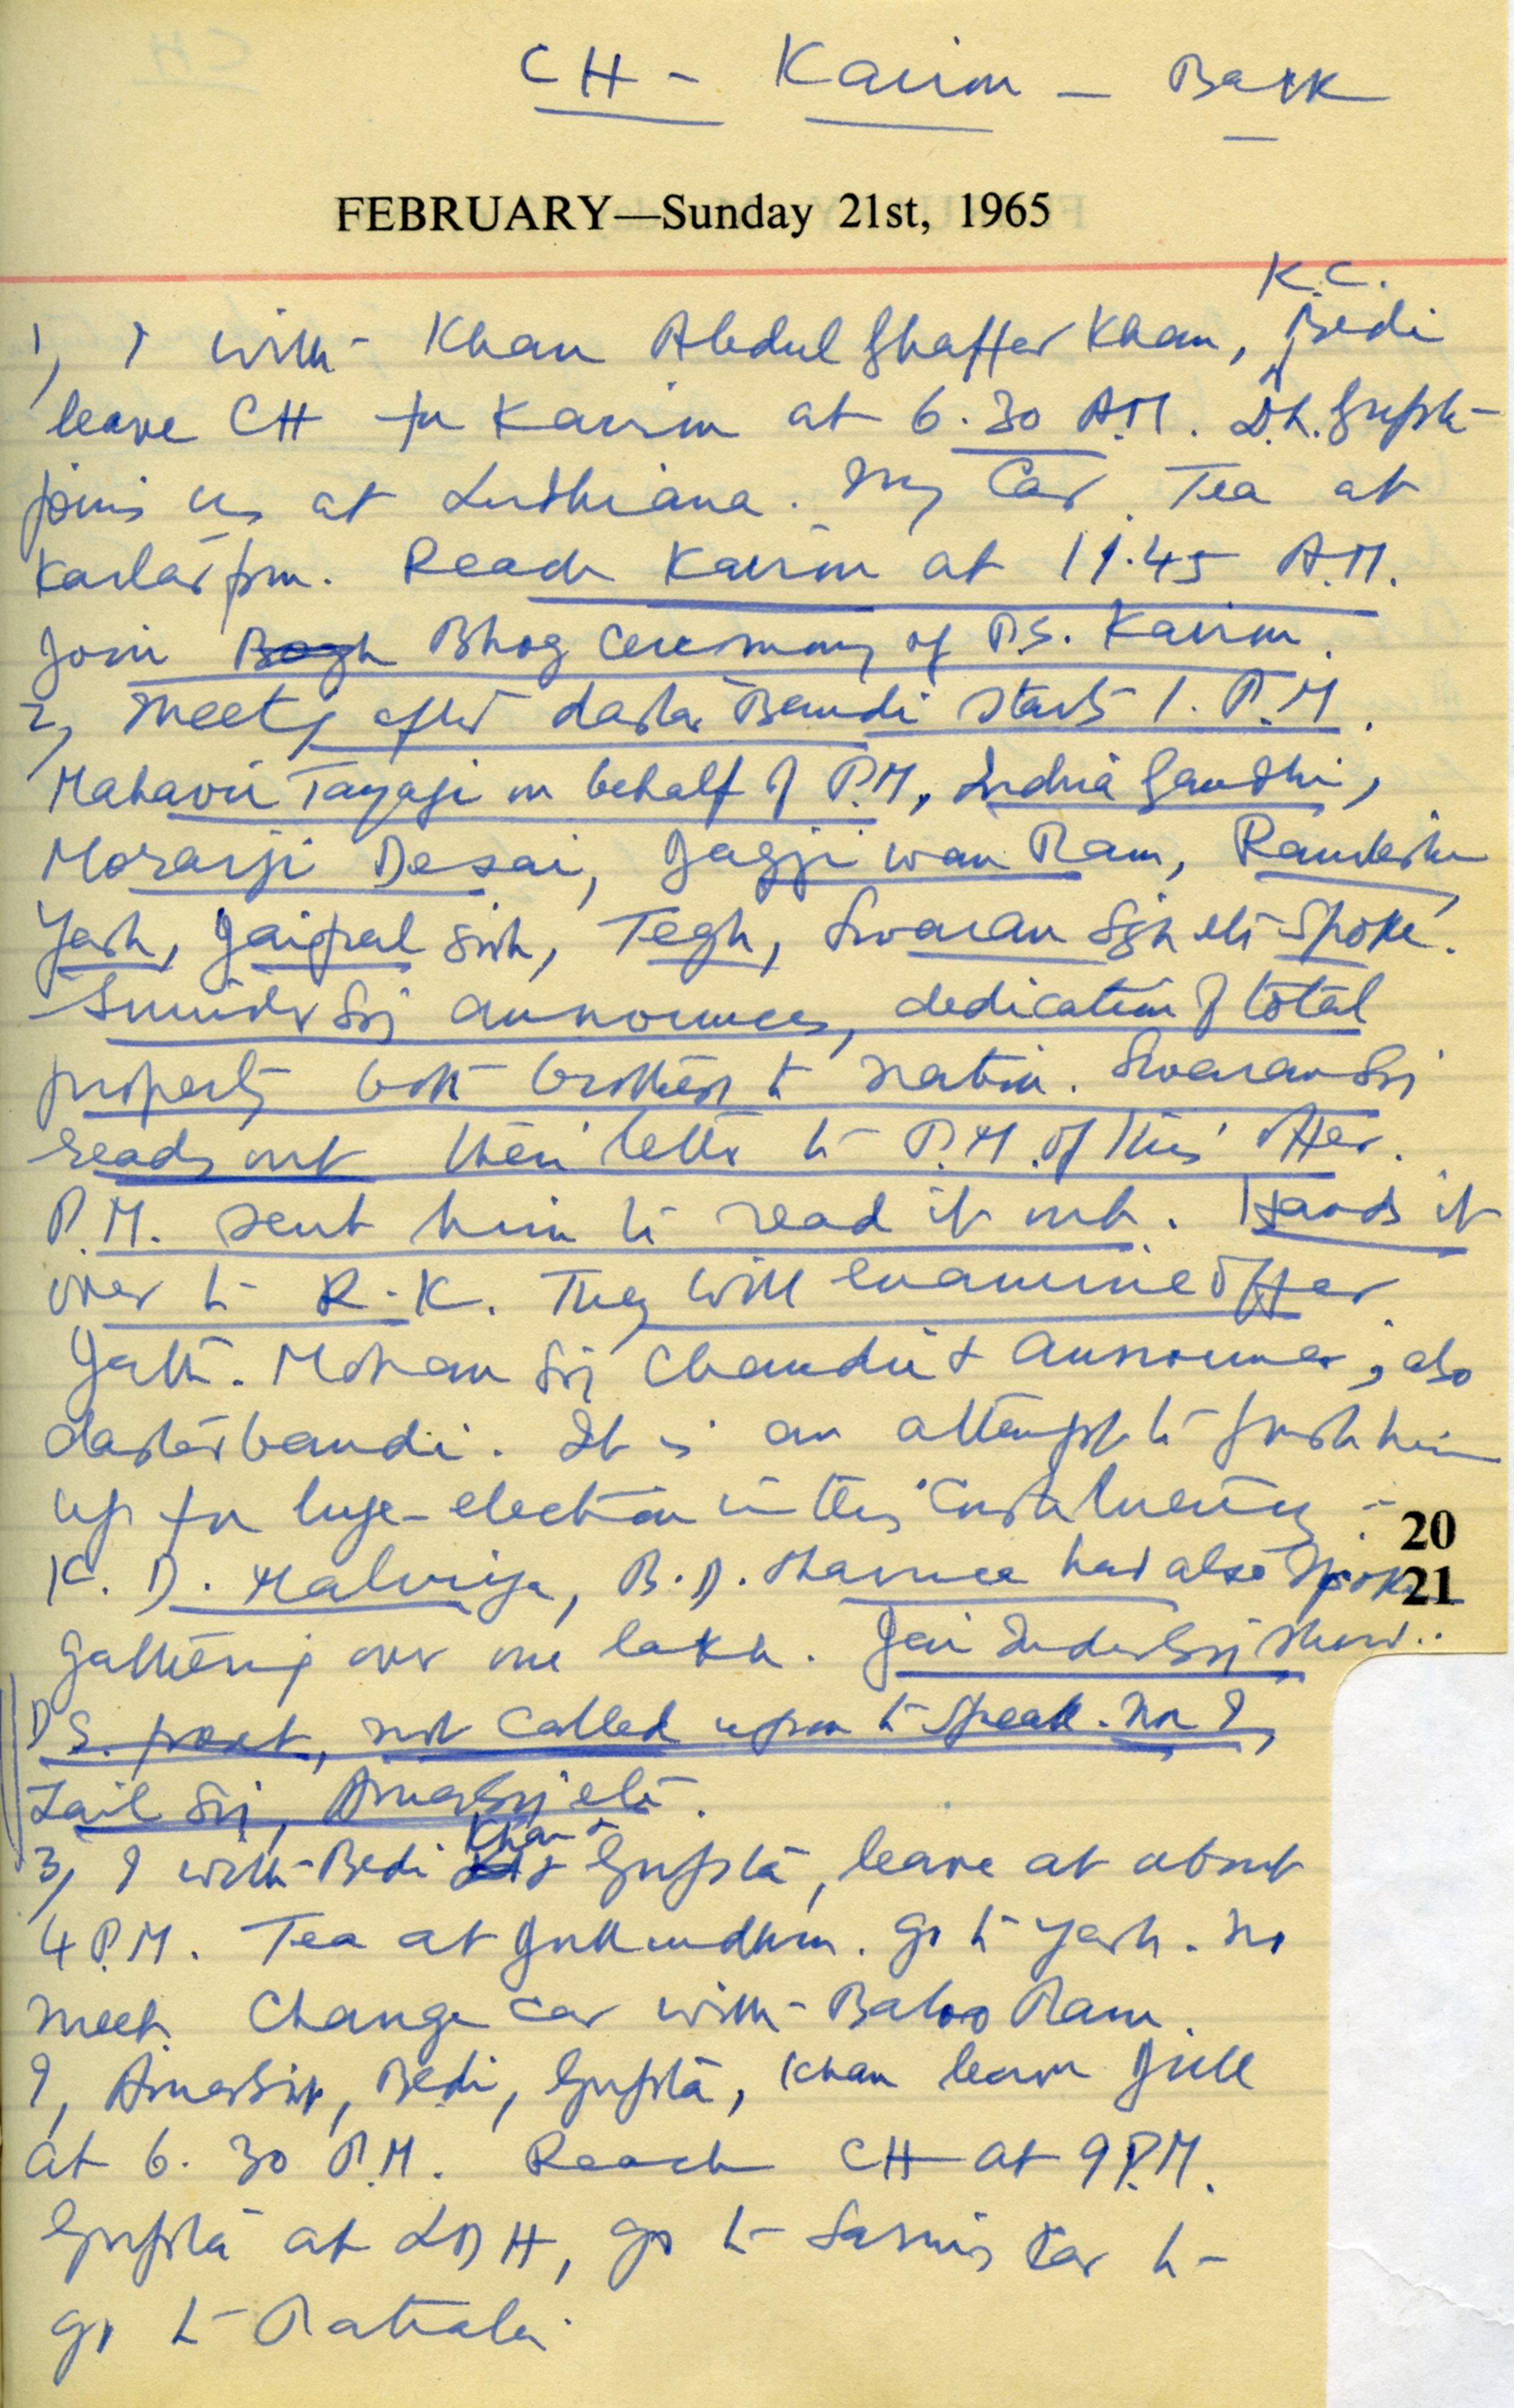 CH - Kairon - Back
FEBRUARY—Sunday 21st, 1965
K.C.
1, I with Khan Abdul Ghaffar Khan, Bedi
leave CH for Kairon at 6.30 A.M. D.L. Gupta
joins us at Ludhiana. My Car. Tea at
Kartarpur. Reach Kairon at 11.45 A.M.
Join Bogh Bhog Ceremony of P.S. Kairon.
2, Meeting after dastar Bandi starts 1. P.M.
Mahavir Tayagi on behalf of P.M, Indira Gandhi,
Morarji Desai, Jagjiwan Ram, Ramkishan
Yash, Jaipal Singh, Tegh, Swaran Sgh etc spoke.
Surinder Sg announces, dedication of total
property both brothers to nation. Swaran Sg
reads out their letter to P.M. of this offer.
P.M. sent him to read it out. Hands it
over to R.K. They will examine offer.
Jath. Mohan Sg Chandir + announcer, also
dastarbandi. It is an attempt to push him
up for bye-election in this Constituency -
20
K. D. Malviya, B.D. had also spoken
21
gathering over one lakh. Jai Inder Sg show..
P.S. part, not called upon to speak. Nor I,
Zail Sg, Amar Sg etc.
Khan +
3, I with Bedi Gupta, leave at about
4 P.M. Tea at Jullundhur. go to Yash. No
meet. Change car with Baboo Ram.
I, Amar Singh, Bedi, Gupta, Khan leave Jull
at 6.30 P.M. Reach CH at 9 P.M.
Gupta at LDH, go to Car to
go to Patiala.